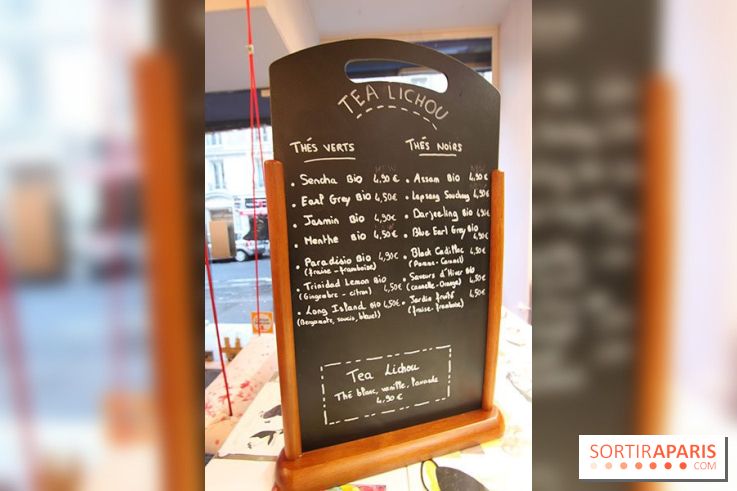 TEA LICHOU
THÉS VERTS
• Sencha Bio 4,90€
• Earl Grey Bio 4,50€
• Jasmin Bio 4,90€
• Menthe Bio 4,50€
• Paradisio Bio 4,90€
(fraise - framboise)
• Trinidad Lemon Bio
(Gingembre - citron) 4,50€
• Long Island Bio 4,50€
(Bergamote, soucis, bleuet)
THÉS NOIRS
• Assam Bio 4,90€
• Lapsang Souchong 4,90€
• Darjeeling Bio 4,90€
• Blue Earl Grey Bio
4,90€
• Black Cadillac 4,90€
(Pomme - Caramel)
• Saveurs d'Hiver Bio
(cannelle - Orange) 4,50€
• Jardin fruité 4,50€
(fraise - framboise)
Tea Lichou
Thé blanc, vanille, lavande
4,90€
SORTIRAPARIS
.COM